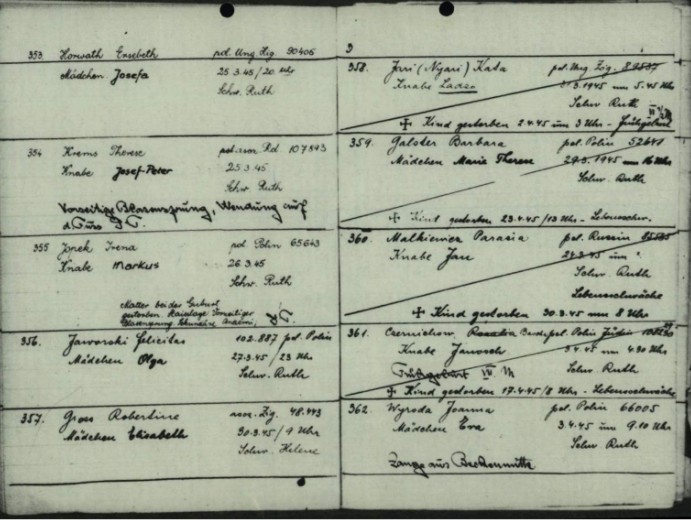 353 Horvath Ersebeth pol. Ung. Zig. 90406
Mädchen Josefa 25.3.45/20 Uhr
Schw. Ruth
354 Krems Therese 107893
Knabe Josef-Peter 25.3.45
Schw. Ruth
Vorzeitige Blasensprung, Wendung auf
d. Fuss
355 Jonek Irena pol. Polin 65643
Knabe Markus 26.3.45
Schw. Ruth
Mutter bei der Geburt
gestorben
356. Jaworski Felicitas 102.887 pol. Polin
Mädchen Olga 27.3.45/23 Uhr
Schw. Ruth
357. Gross Robertine Zig. 48.443
Mädchen Elisabeth 30.3.45/9 Uhr
Schw. Helene
358. Jari (Nyari) Kata pol. Ung. Zig.
Knabe 3.1945 um 5.45 Uhr
Schw. Ruth
+ Kind gestorben 2.4.45 um 3 Uhr - Frühgeburt
359. Galster Barbara pol. Polin 52641
Mädchen Maria Therese 1945 um 16 Uhr
Schw. Ruth
+ Kind gestorben 23.4.45/13 Uhr - Lebensschw.
360. Malkiewicz Parasia pol. Russin
Knabe Jan um
Schw. Ruth
Lebensschwäche
+ Kind gestorben 30.3.45 um 8 Uhr
361. Czernichow, pol. Polin Jüdin
Knabe Janosch 3.4.45 um 4.30 Uhr
Frühgeburt VII. M Schw. Ruth
+ Kind gestorben 17.4.45/8 Uhr - Lebensschwäche
362. Wyroda Joanna pol. Polin 66005
Mädchen Eva 3.4.45 um 9.10 Uhr
Schw. Ruth
Zange aus Beckenmitte